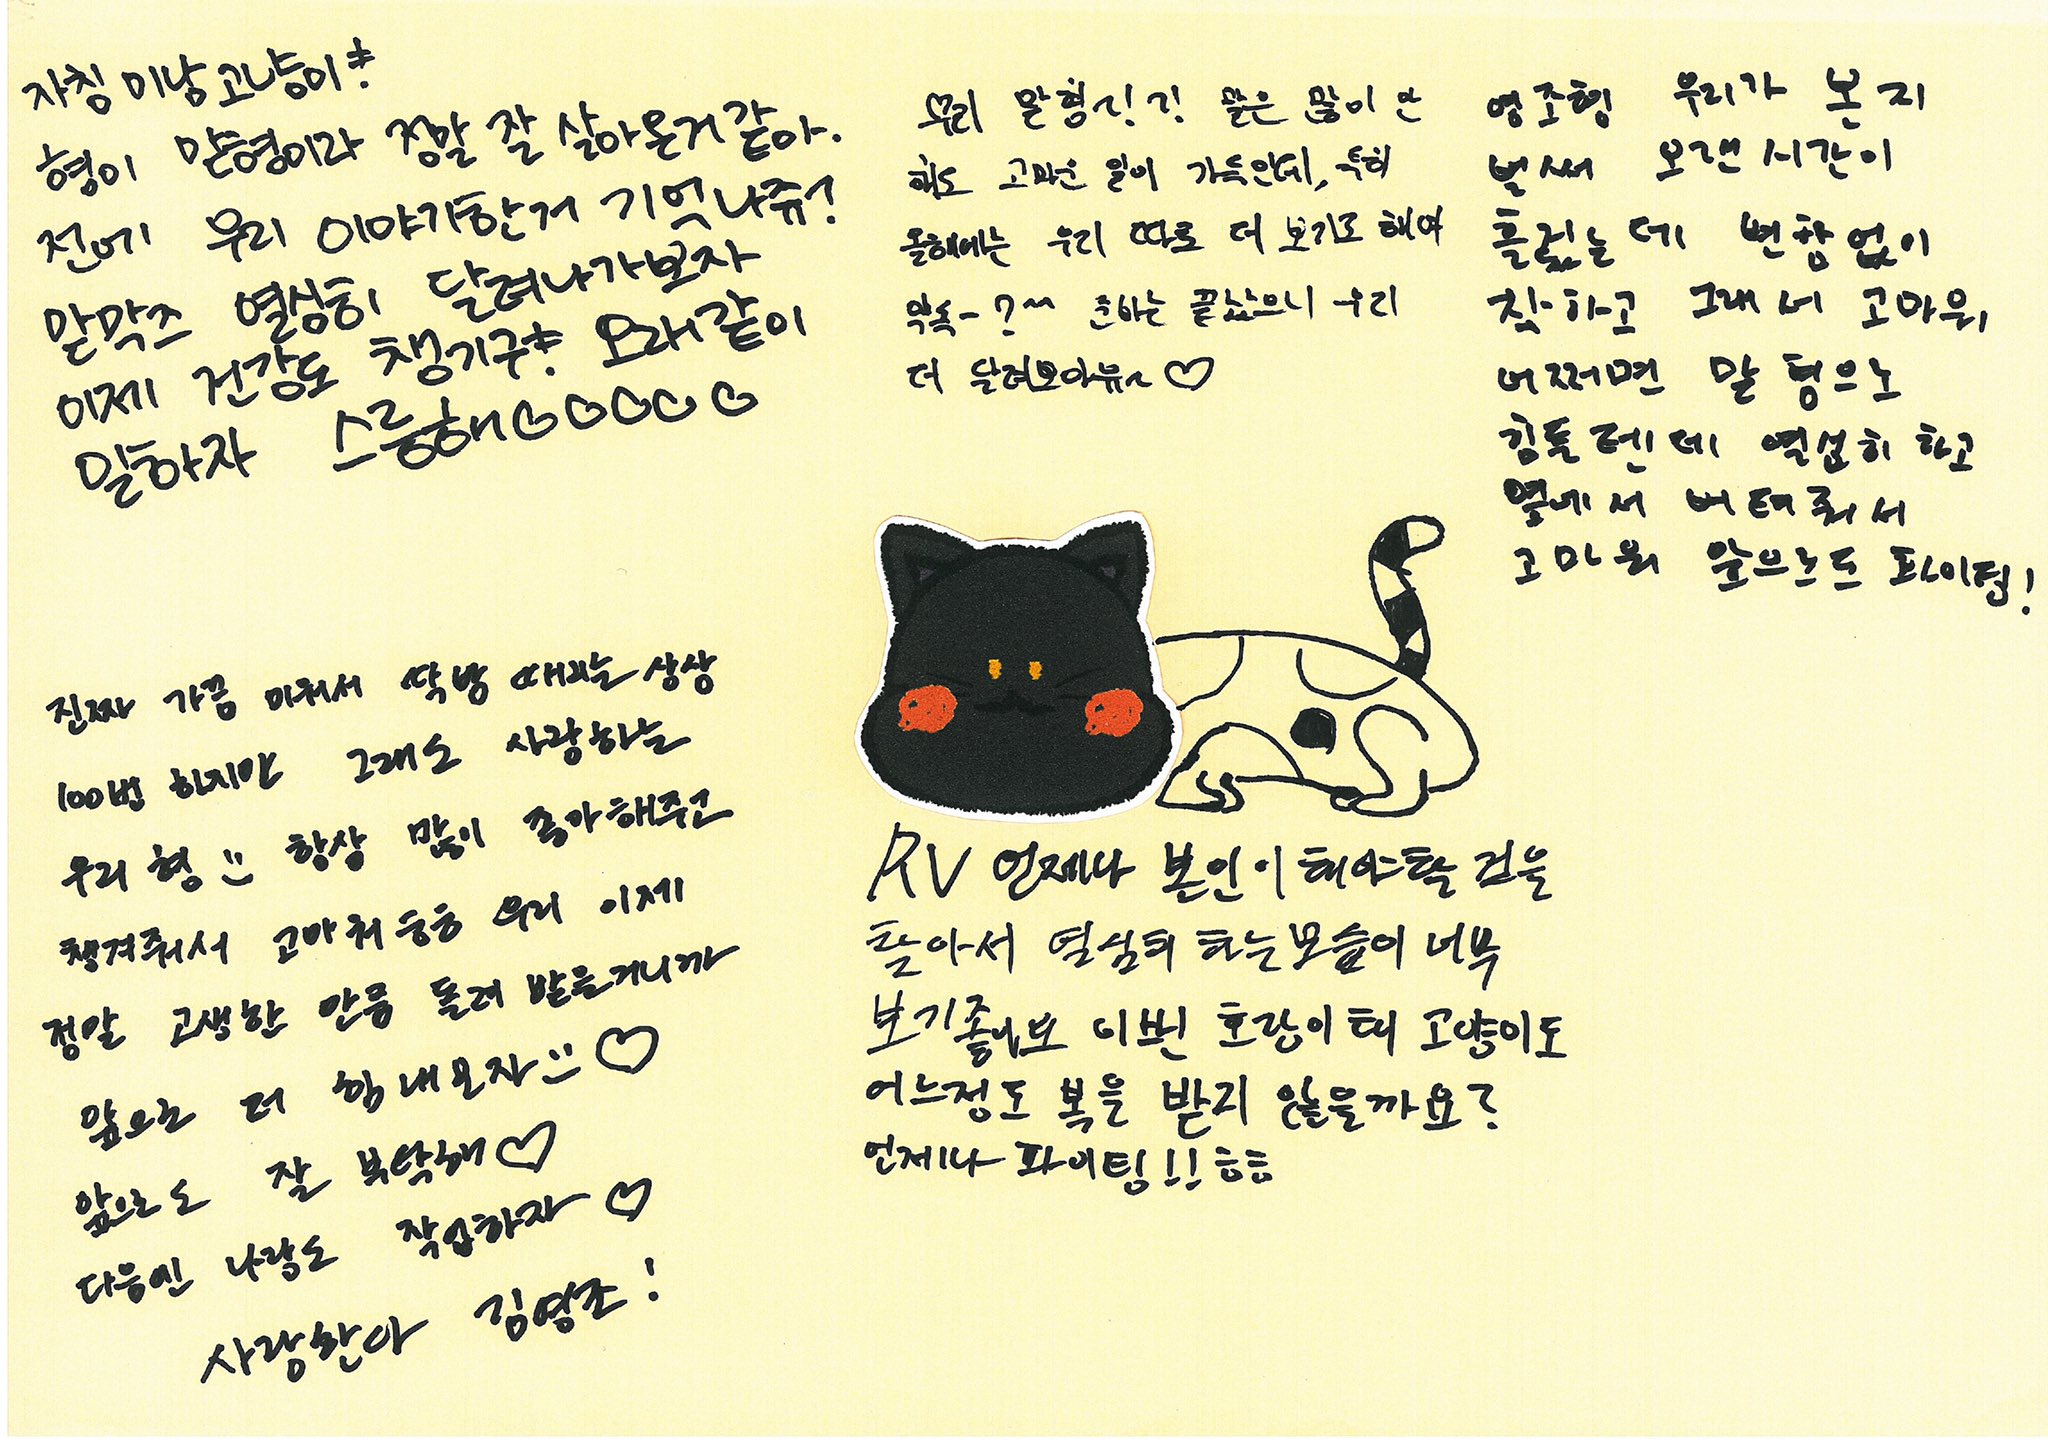 자칭 미남 고냥이!
형이 맏형이라 정말 잘 살아온거 같아.
전에 우리 이야기한거 기억나쥬?
맏막즈 열심히 달려나가보자
이제 건강도 챙기구! 오래같이
일하자 스릉해♡♡♡♡♡
우리 맏형ㄱ!ㄱ! 말은 많이 안
해도 고마운 일이 가득인데, 특히
올해에는 우리 따로 더 보기로 해여
약속~?^^ 준비는 끝났으니 우리
더 달려보아뉴~ ♡
영조형 우리가 본지
벌써 오랜시간이
흘렀는데 변함없이
착하고 그래 네 고마워
어쩌면 맏 형으로
힘들텐데 열심히 하고
옆에서 버텨줘서
고마워 앞으로도 파이팅!
진짜 가끔 미워서 딱밤 때리는 상상
100번 하지만 그래도 사랑하는
우리형 :) 항상 많이 좋아해주고
챙겨줘서 고마워 ㅎㅎ 우리 이제
정말 고생한 만큼 돌려 받을거니까
앞으로 더 힘내보자 :) ♡
앞으로도 잘 부탁해♡
다음엔 나랑도 작업하자 ♡
사랑한다 김영조!
RV 언제나 본인이 해야할 건을
찾아서 열심히 하는모습이 너무
보기좋나보 이번 호랑이해 고양이도
어느정도 복을 받지 않을까요?
언제나 파이팅!! ㅎㅎ